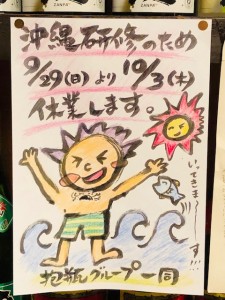 沖縄研修のため
9/29(日)より10/3(木)
休業します。
いってきまーす!!!
抱瓶グループ一同